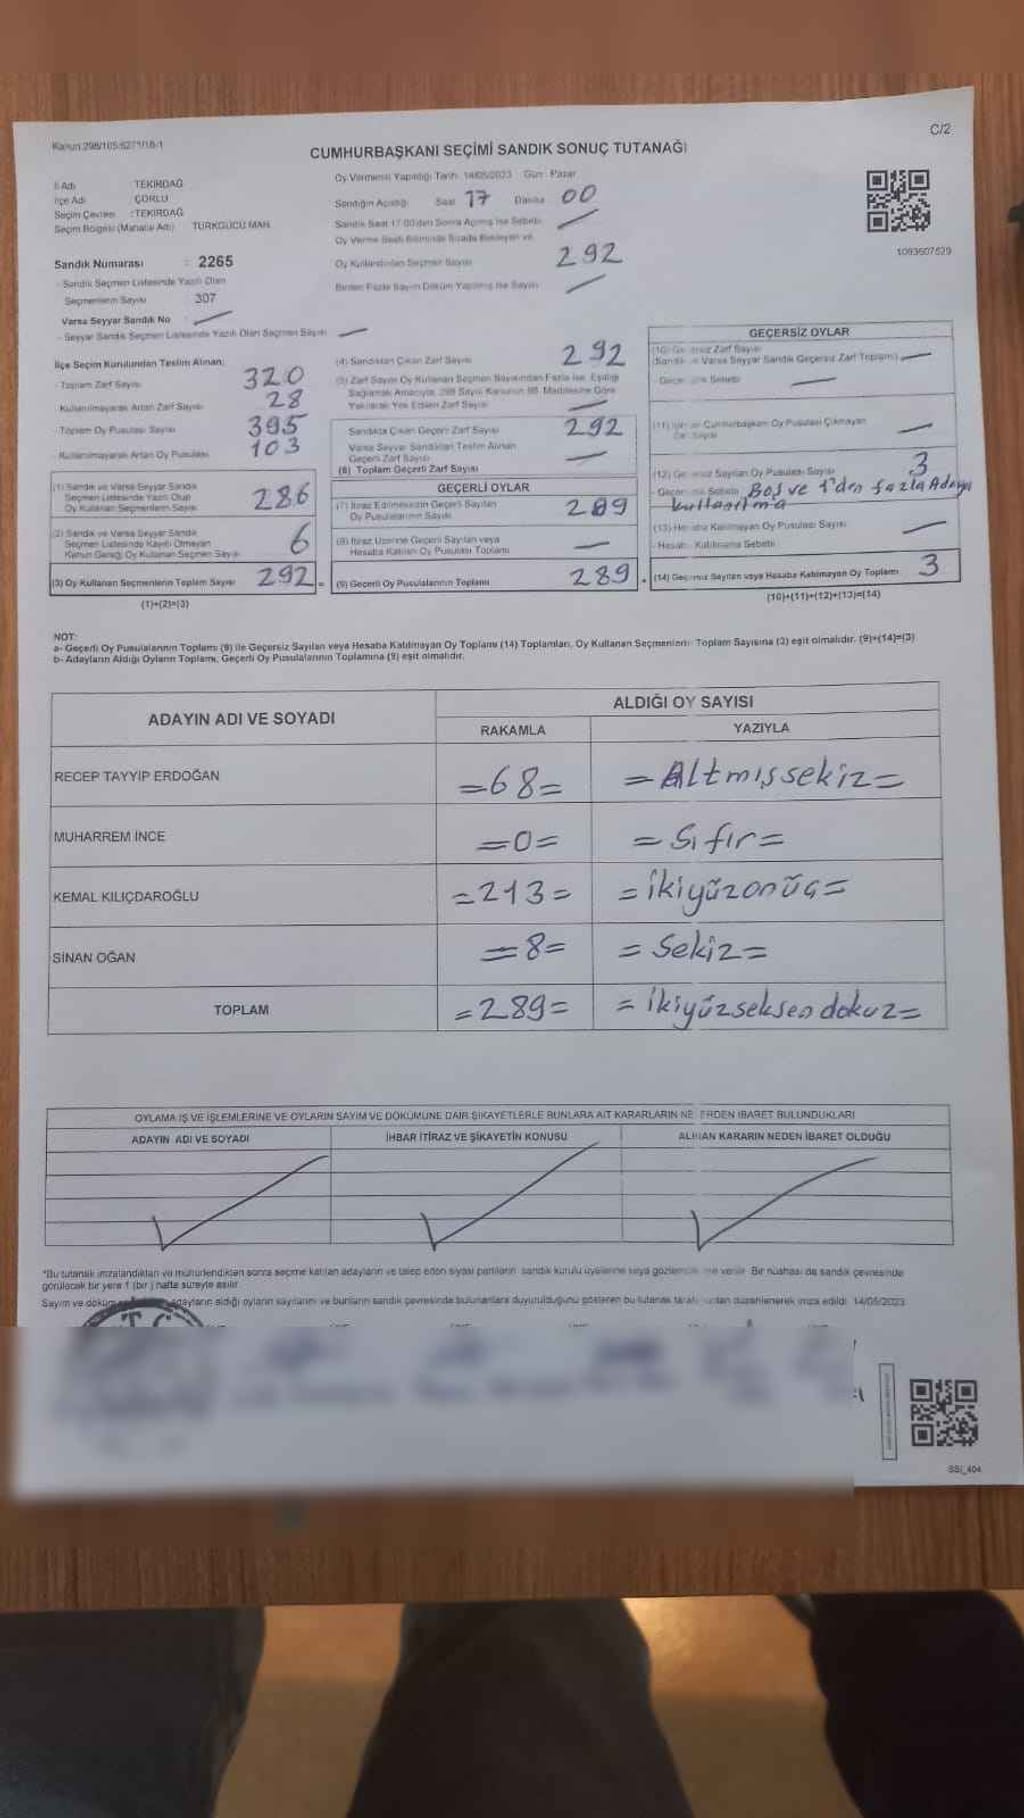 Kanun:298/105:6271/18-1
C/2
CUMHURBAŞKANI SEÇİMİ SANDIK SONUÇ TUTANAĞI
İl Adı : TEKİRDAĞ
İlçe Adı : ÇORLU
Seçim Çevresi :TEKİRDAĞ
Seçim Bölgesi (Mahalle Adı) : TÜRKGÜCÜ MAH.
Oy Vermenin Yapıldığı Tarih: 14/05/2023 Gün: Pazar
Sandığın Açıldığı: Saat 17 Dakika 00
Sandık Saat 17.00'den Sonra Açılmış İse Sebebi
Oy Verme Saati Bitiminde Sırada Bekleyen ve
Oy Kullandırılan Seçmen Sayısı 292
Birden Fazla Sayım Döküm Yapılmış İse Sayısı
1093607529
Sandık Numarası : 2265
- Sandık Seçmen Listesinde Yazılı Olan
Seçmenlerin Sayısı 307
Varsa Seyyar Sandık No
- Seyyar Sandık Seçmen Listesinde Yazılı Olan Seçmen Sayısı
İlçe Seçim Kurulundan Teslim Alınan:
- Toplam Zarf Sayısı 320
- Kullanılmayarak Artan Zarf Sayısı 28
- Toplam Oy Pusulası Sayısı 395
- Kullanılmayarak Artan Oy Pusulası 103
(1) Sandık ve Varsa Seyyar Sandık
Seçmen Listesinde Yazılı Olup
Oy Kullanan Seçmenlerin Sayısı 286
(2) Sandık ve Varsa Seyyar Sandık
Seçmen Listesinde Kayıtlı Olmayan
Kanun Gereği Oy Kullanan Seçmen Sayısı 6
(3) Oy Kullanan Seçmenlerin Toplam Sayısı 292
(1)+(2)=(3)
(4) Sandıktan Çıkan Zarf Sayısı 292
(5) Zarf Sayısı Oy Kullanan Seçmen Sayısından Fazla İse, Eşitliği
Sağlamak Amacıyla, 298 Sayılı Kanunun 98. Maddesine Göre
Yakılarak Yok Edilen Zarf Sayısı
Sandıkta Çıkan Geçerli Zarf Sayısı 292
Varsa Seyyar Sandıktan Teslim Alınan
Geçerli Zarf Sayısı
(6) Toplam Geçerli Zarf Sayısı
GEÇERLİ OYLAR
(7) İtiraz Edilmeksizin Geçerli Sayılan
Oy Pusulalarının Sayısı 289
(8) İtiraz Üzerine Geçerli Sayılan veya
Hesaba Katılan Oy Pusulası Toplamı
(9) Geçerli Oy Pusulalarının Toplamı 289
GEÇERSİZ OYLAR
(10) Geçersiz Zarf Sayısı
(Sandık ve Varsa Seyyar Sandık Geçersiz Zarf Toplamı)
Geçersizlik Sebebi
(11) İçinden Cumhurbaşkanı Oy Pusulası Çıkmayan
Zarf Sayısı
(12) Geçersiz Sayılan Oy Pusulası Sayısı 3
Geçersizlik Sebebi Boş ve 1'den fazla Adaya
kullanılma
(13) Hesaba Katılmayan Oy Pusulası Sayısı
- Hesaba Katılmama Sebebi
(14) Geçersiz Sayılan veya Hesaba Katılmayan Oy Toplamı 3
(10)+(11)+(12)+(13)=(14)
NOT:
a- Geçerli Oy Pusulalarının Toplamı (9) ile Geçersiz Sayılan veya Hesaba Katılmayan Oy Toplamı (14) Toplamları, Oy Kullanan Seçmenlerin Toplam Sayısına (3) eşit olmalıdır. (9)+(14)=(3)
b- Adayların Aldığı Oyların Toplamı, Geçerli Oy Pusulalarının Toplamına (9) eşit olmalıdır.
ADAYIN ADI VE SOYADI
ALDIĞI OY SAYISI
RAKAMLA YAZIYLA
RECEP TAYYİP ERDOĞAN =68= =Altmışsekiz=
MUHARREM İNCE =0= =Sıfır=
KEMAL KILIÇDAROĞLU =213= =İkiyüzonüç=
SİNAN OĞAN =8= =Sekiz=
TOPLAM =289= =İkiyüzseksendokuz=
OYLAMA İŞ VE İŞLEMLERİNE VE OYLARIN SAYIM VE DÖKÜMÜNE DAİR ŞİKAYETLERLE BUNLARA AİT KARARLARIN NELERDEN İBARET BULUNDUKLARI
ADAYIN ADI VE SOYADI İHBAR İTİRAZ VE ŞİKAYETİN KONUSU ALINAN KARARIN NEDEN İBARET OLDUĞU
*Bu tutanak imzalandıktan ve mühürlendikten sonra seçime katılan adayların ve talep eden siyasi partilerin sandık kurulu üyelerine veya gözlemcilerine verilir. Bir nüshası da sandık çevresinde
görülecek bir yere 1 (bir) hafta süreyle asılır.
Sayım ve döküm adayların aldığı oyların sayılarını ve bunların sandık çevresinde bulunanlara duyurulduğunu gösteren bu tutanak tarafımızdan düzenlenerek imza edildi. 14/05/2023
T.C.
SSI_404